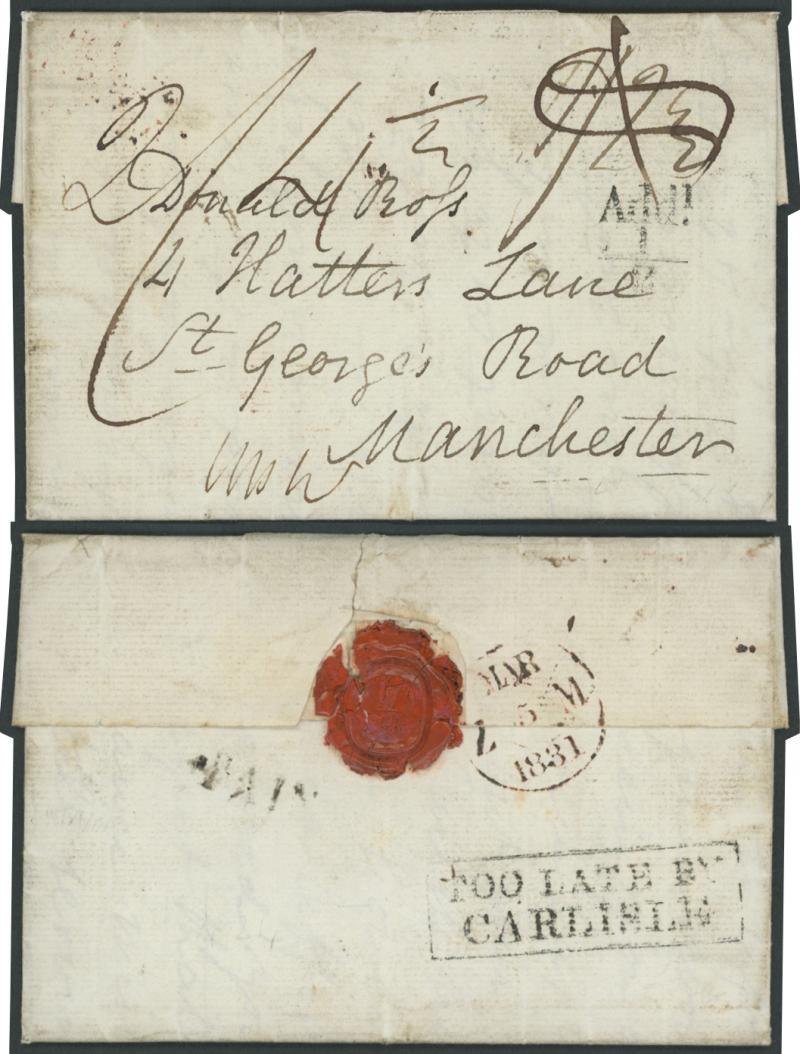 ½
Donald Roſs
Addl
1
2
4 Hatters Lane
St George's Road
Manchester
MAR
5 M
1831
PAID
TOO LATE BY
CARLISLE